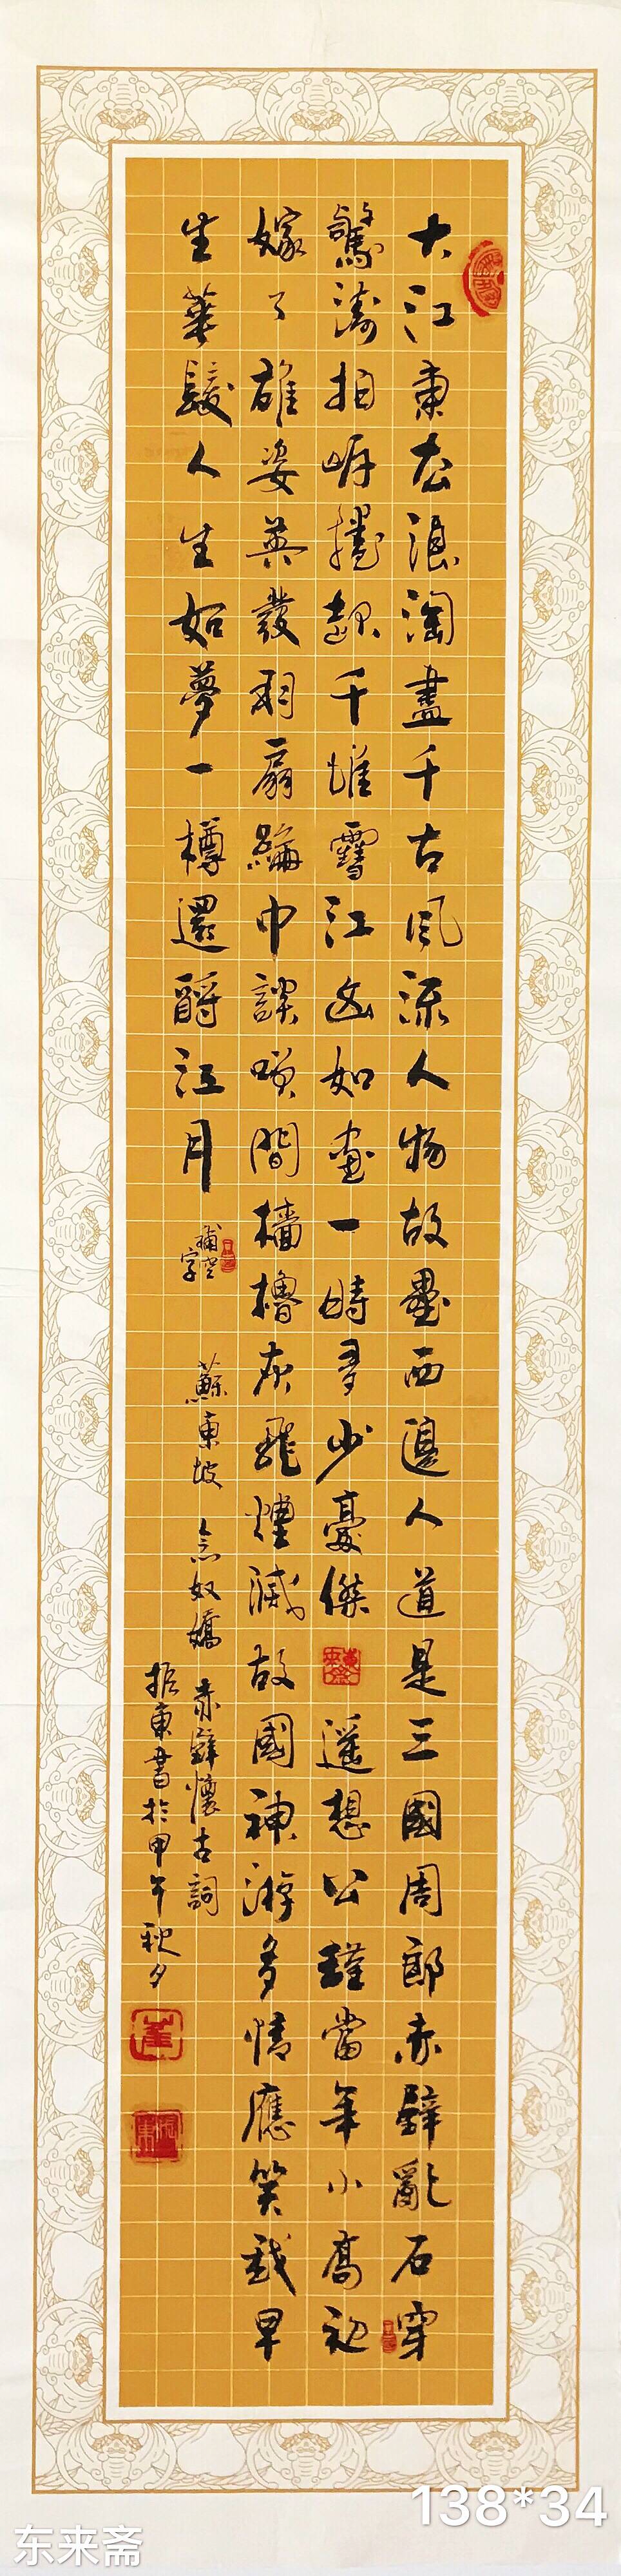 大江東去浪淘盡千古風流人物故壘西邊人道是三國周郎赤壁亂石穿
驚濤拍岸捲起千堆雪江山如畫一時多少豪傑 遥想公瑾當年小喬初
嫁了雄姿英發羽扇綸巾談笑間檣櫓灰飛煙滅故國神游多情應笑我早
生華髮人生如夢一樽還酹江月
補空字
蘇東坡 念奴嬌 赤壁懷古詞
振東書於甲午秋夕
崔
138*34
东来斋